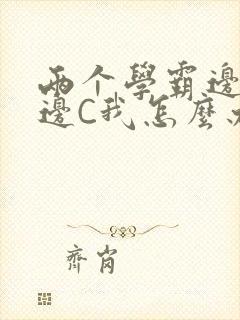 两个學霸邊
邊C我怎麼
齊崗